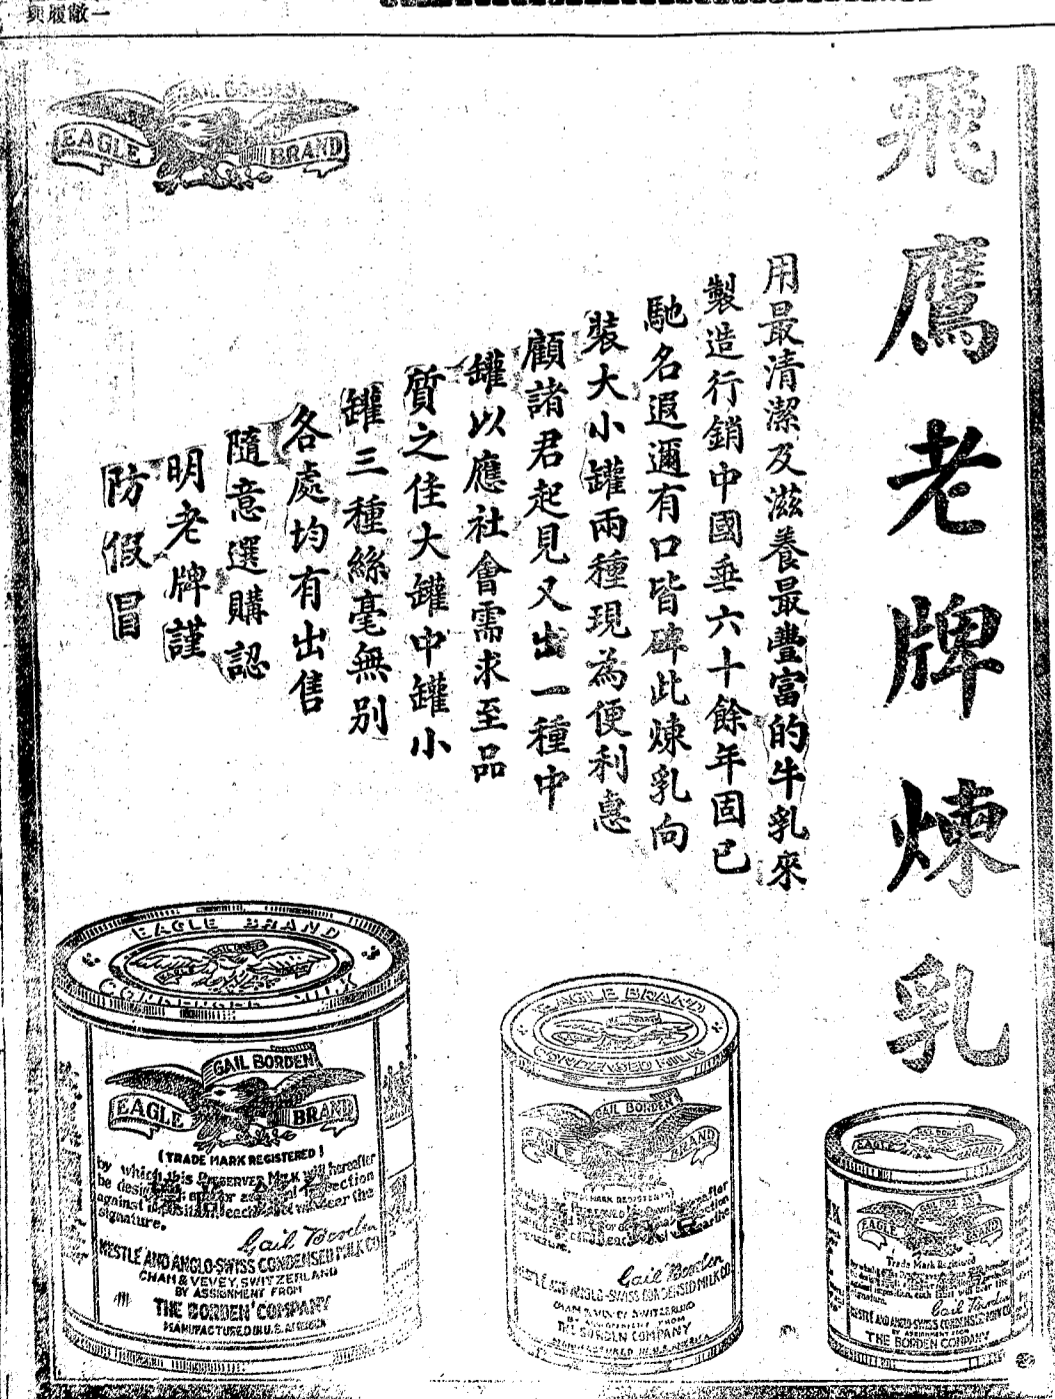 飛鷹老牌煉乳
用最清潔及滋養最豐富的牛乳來
製造行銷中國垂六十餘年固已
馳名遐邇有口皆碑此煉乳向
裝大小罐兩種現為便利惠
顧諸君起見又出一種中
罐以應社會需求至品
質之佳大罐中罐小
罐三種絲毫無別
各處均有出售
隨意選購認
明老牌謹
防假冒
GAIL BORDEN
EAGLE BRAND
EAGLE BRAND
GAIL BORDEN
EAGLE BRAND
(TRADE MARK REGISTERED)
by which this PRESERVED MILK will hereafter
signature.
Gail Borden
NESTLE AND ANGLO-SWISS CONDENSED MILK CO
CHAM & VEVEY, SWITZERLAND
BY ASSIGNMENT FROM
THE BORDEN COMPANY
MANUFACTURED IN U.S. AMERICA
EAGLE BRAND
CONDENSED MILK
GAIL BORDEN
Gail Borden
NESTLE AND ANGLO-SWISS CONDENSED MILK CO
CHAM & VEVEY SWITZERLAND
BY ASSIGNMENT FROM
THE BORDEN COMPANY
MANUFACTURED IN U.S. AMERICA
EAGLE
EAGLE
Trade Mark Registered
Gail Borden
NESTLE AND ANGLO-SWISS CONDENSED MILK CO
BY ASSIGNMENT FROM
THE BORDEN COMPANY